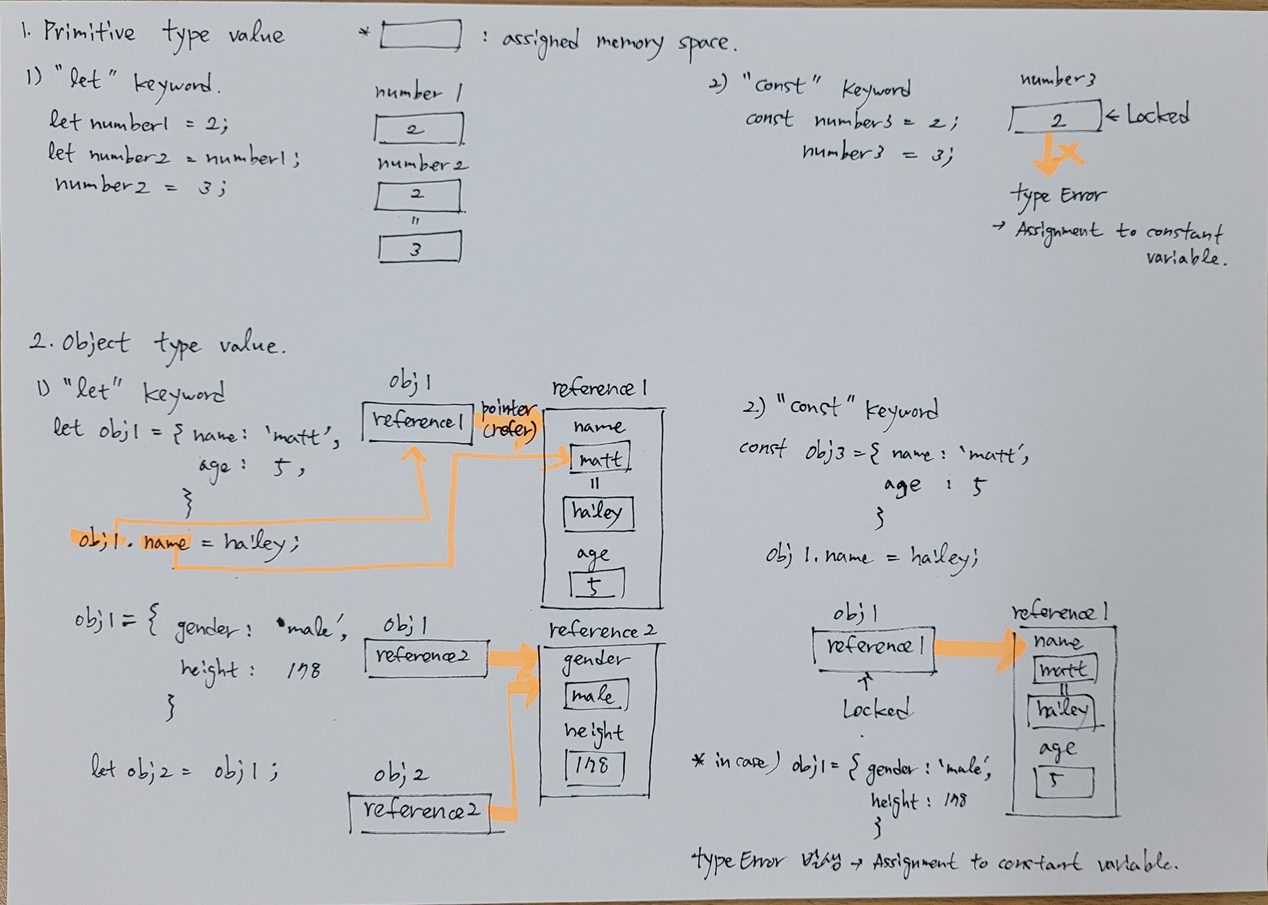 1. Primitive type value
* : assigned memory space.
1) "let" keyword.
let number1 = 2;
let number2 = number1;
number2 = 3;
number 1
2
number2
2
=
3
2) "const" keyword
const number3 = 2;
number3 = 3;
number3
2
← Locked
X
type Error
→ Assignment to constant
variable.
2. object type value.
1) "let" keyword
let obj1 = { name: 'matt',
age : 5,
}
obj1. name = hailey;
obj1
reference1
pointer
(refer)
reference1
name
matt
=
hailey
age
5
obj1 = { gender: 'male',
height : 178
}
obj1
reference2
reference 2
gender
male
height
178
let obj2 = obj1 ;
obj2
reference2
2) "const" keyword
const obj3 = { name: 'matt',
age : 5
}
obj 1.name = hailey;
obj1
reference1
↑
Locked
reference1
name
matt
=
hailey
age
5
* in case) obj1 = { gender : 'male',
height : 178
}
type Error 발생 → Assignment to constant variable.